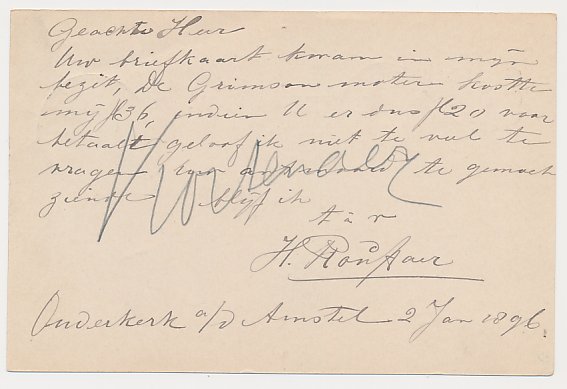 Geachte Heer
Uw briefkaart kwam in mijn
bezit, De Grimson motor kostte
mij f36, indien U er dus f20 voor
betaalt geloof ik niet te veel te
vragen Uw antwoord te gemoet
ziende blijf ik
H.
Ouderkerk a/d Amstel 2 Jan 1896